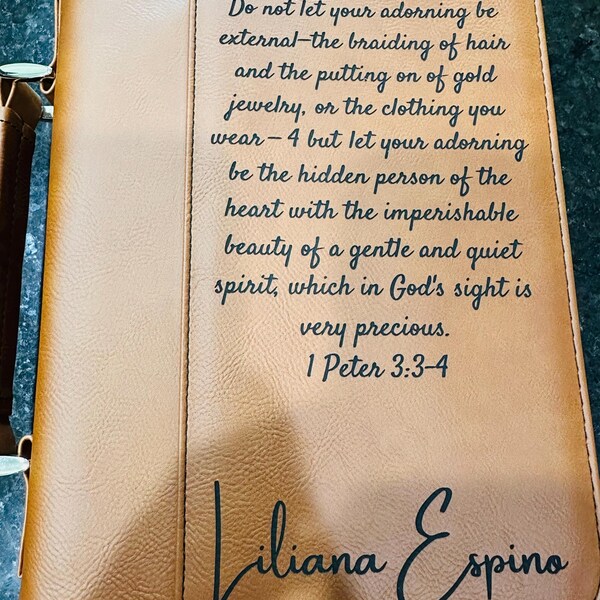 Do not let your adorning be
external—the braiding of hair
and the putting on of gold
jewelry, or the clothing you
wear— 4 but let your adorning
be the hidden person of the
heart with the imperishable
beauty of a gentle and quiet
spirit, which in God's sight is
very precious.
1 Peter 3:3-4
Liliana Espino